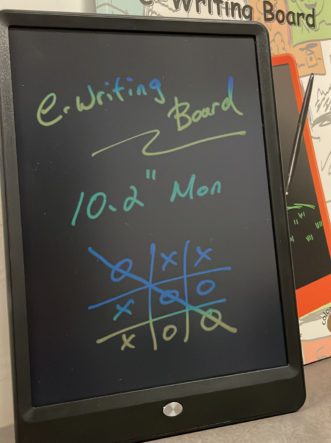 e-Writing Board
e-Writing
Board
10.2" Mon
O X X
X O O
X O O